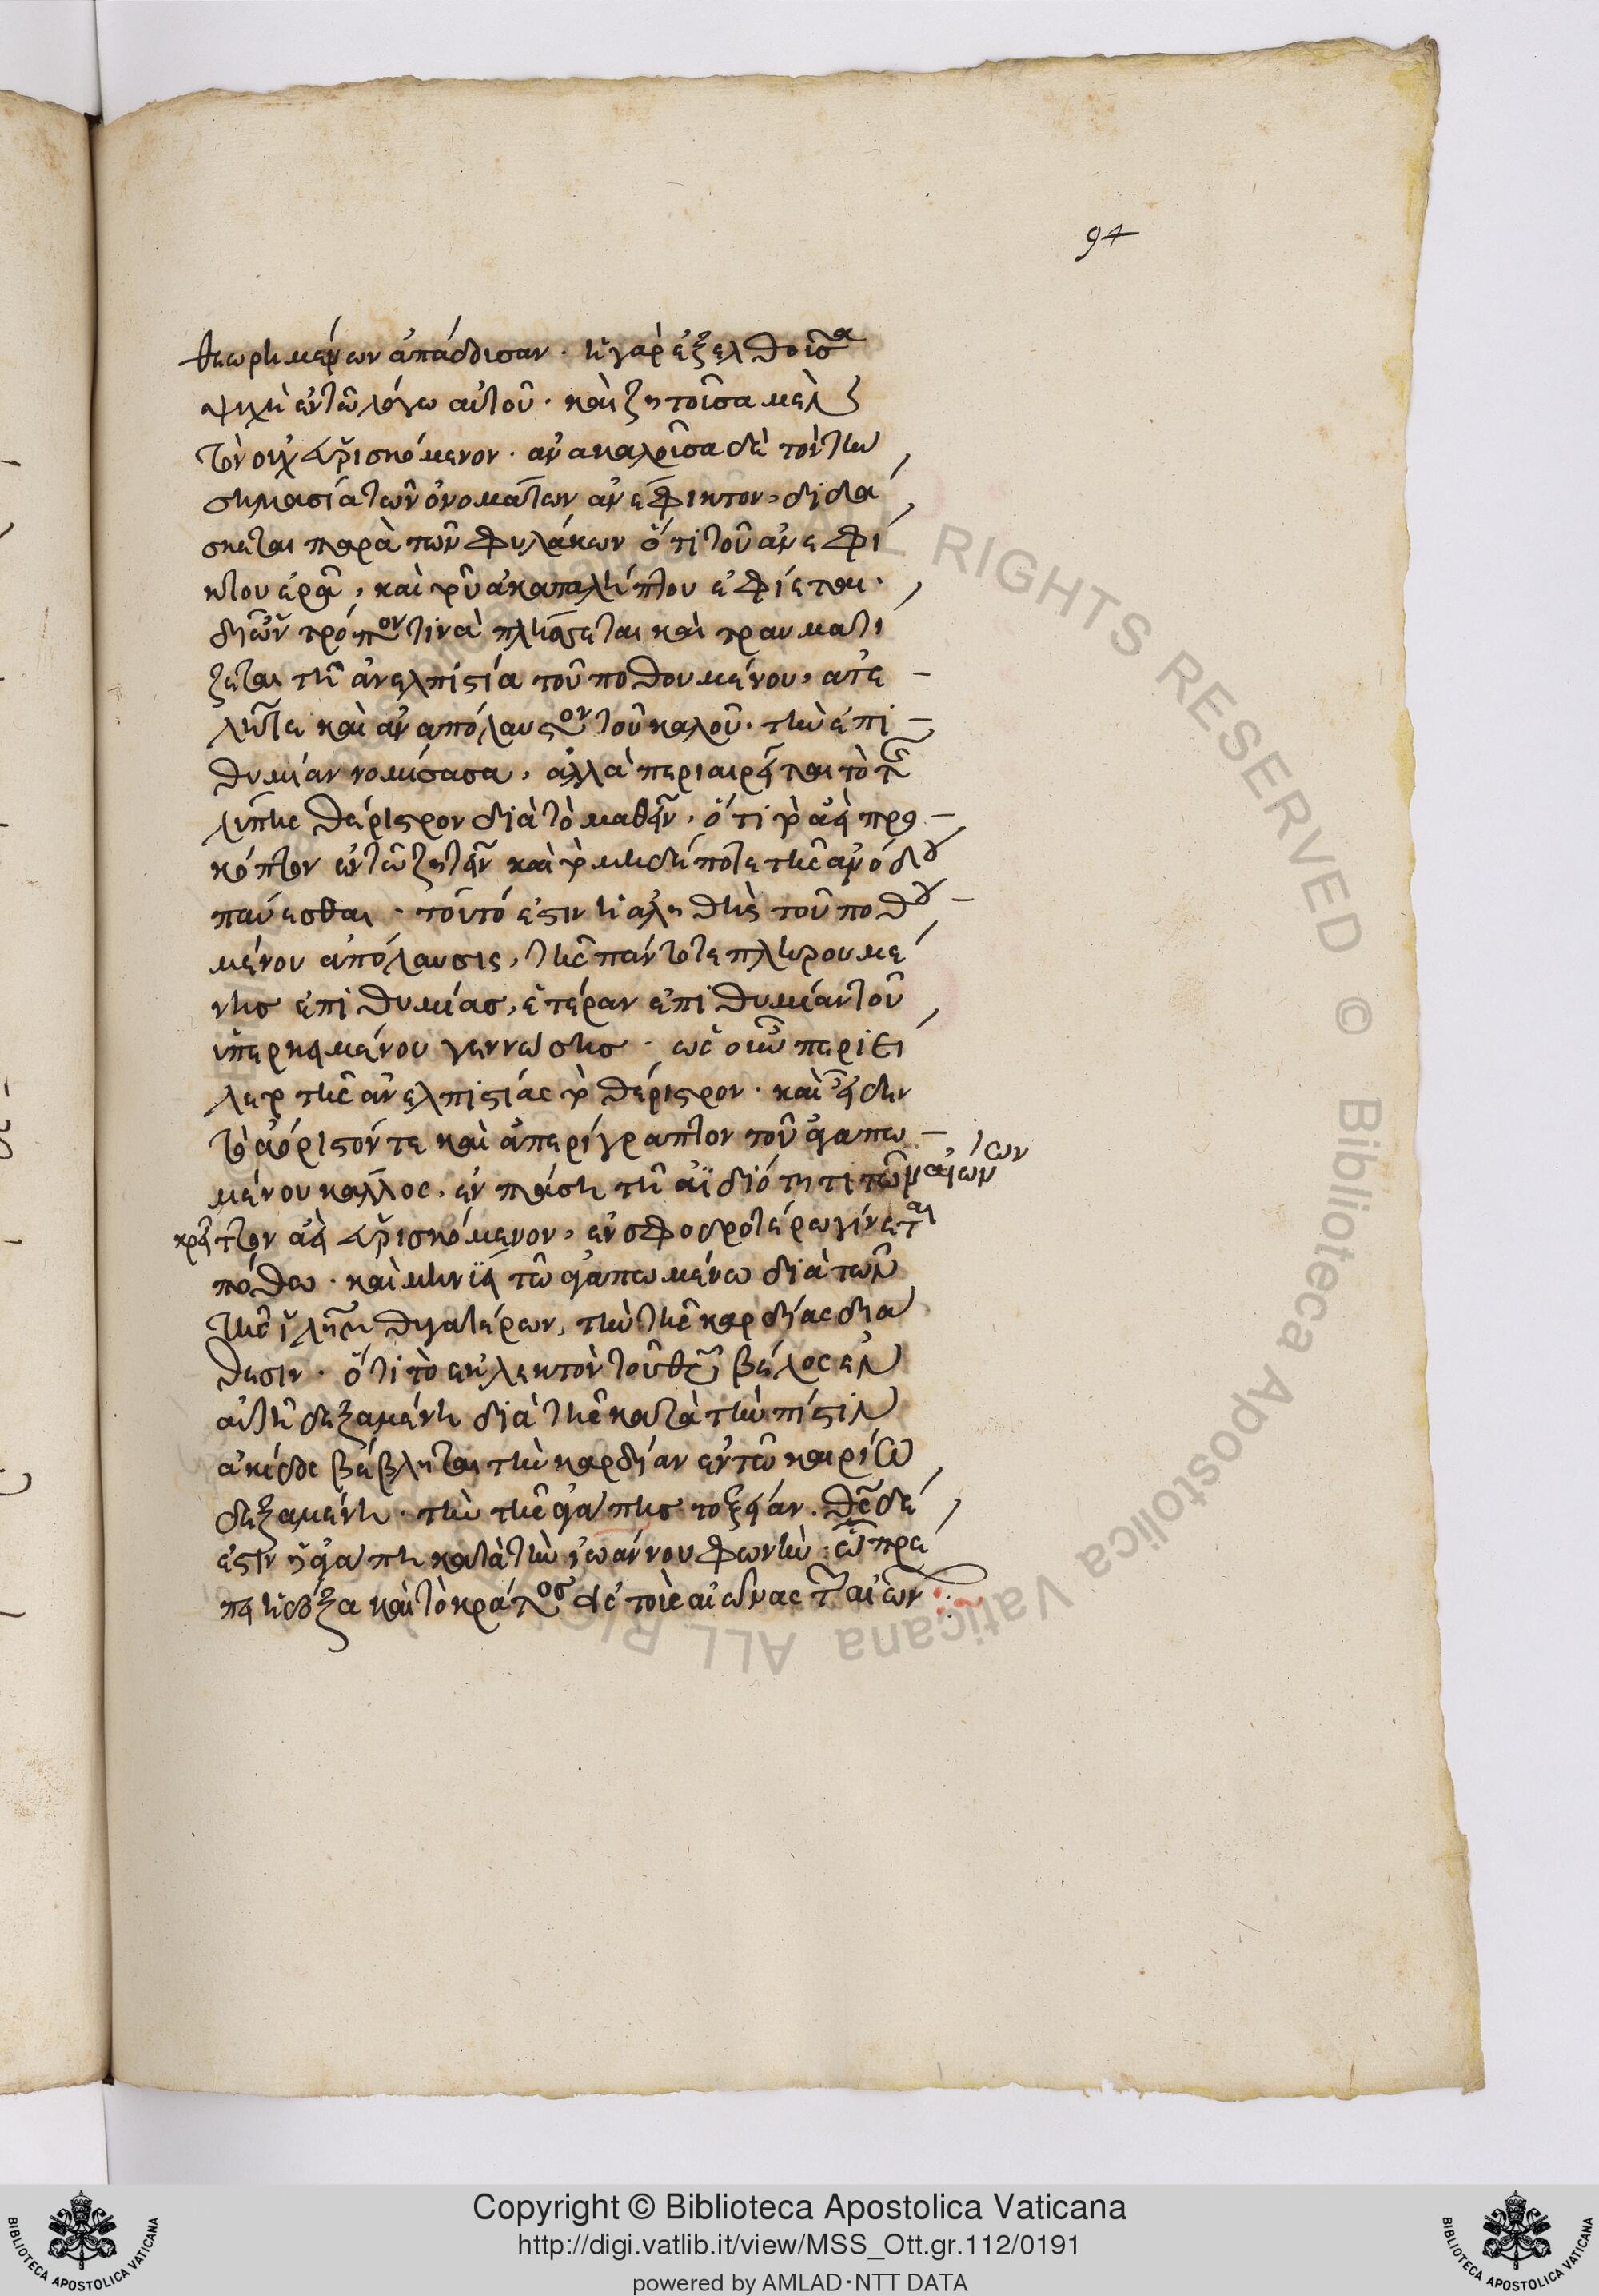 94
θεωρημένων ἀπάδουσαν. ἡ γὰρ ἐξελθοῦσα
ψυχὴ ἐν τῶ λόγω αὐτοῦ. καὶ ζητοῦσα μὲν
τὸν οὐχ εὑρισκόμενον. ἀνακαλοῦσα δὲ τὸν τῆ
σημασία τῶν ὀνομάτων ἀνέφικτον, διδά
σκεται παρὰ τῶν φυλάκων ὅτι τοῦ ἀνεφί
κτου ἐρᾶ, καὶ τοῦ ἀκαταλήπτου ἐφίεται.
δι ὧν τρόπον τινὰ πλήσσεται καὶ τραυματί
ζεται τῆ ἀνελπιστία τοῦ ποθουμένου, ἀτε
λῆ τε καὶ ἀναπόλαυστον τοῦ καλοῦ. τὴν ἐπι
θυμίαν νομίσασα, ἀλλὰ περιαιρεῖται τὸ τῆς
λύπης θέριστρον διὰ τὸ μαθεῖν, ὅτι τὸ ἀεὶ προ
κόπτειν ἐν τῶ ζητεῖν καὶ τὸ μηδέποτε τῆς ἀνόδου
παύεσθαι. τοῦτό ἐστιν ἡ ἀληθὴς τοῦ ποθου
μένου ἀπόλαυσις, τῆς πάντοτε πληρουμέ
νης ἐπιθυμίας, ἑτέραν ἐπιθυμίαν τοῦ
ὑπερκειμένου γεννώσης. ὡς οὖν περιεί
λετο τῆς ἀνελπιστίας τὸ θέριστρον. καὶ εἶδεν
τὸ ἀόριστόν τε καὶ ἀπερίγραπτον τοῦ ἀγαπω
μένου κάλλος, ἐν πάση τῆ ἀϊδιότητι τῶν αἰώνων
κρεῖττον ἀεὶ εὑρισκόμενον, ἐν σφοδροτέρω γίνεται
πόθω. καὶ μηνύει τῶ ἀγαπωμένω διὰ τῶν
τῆς ἰλημ θυγατέρων, τὴν τῆς καρδίας διά
θεσιν. ὅτι τὸ ἐκλεκτὸν τοῦ θυ βέλος ἐν
αὐτῆ δεξαμένη διὰ τῆς κατὰ τὴν πίστιν
ἀκίδος βέβληται τὴν καρδίαν ἐν τῶ καιρίω
δεξαμένη. τὴν τῆς ἀγάπης τοξείαν. θς δέ
ἐστιν ἡ ἀγάπη κατὰ τὴν ἰωάννου φωνήν: ὧ πρέ
πει ἡ δόξα καὶ τὸ κράτος εἰς τοὺς αἰῶνας τῶν αἰώνων
Copyright © Biblioteca Apostolica Vaticana
http://digi.vatlib.it/view/MSS_Ott.gr.112/0191
powered by AMLAD·NTT DATA
BIBLIOTECA APOSTOLICA VATICANA
BIBLIOTECA APOSTOLICA VATICANA
ALL RIGHTS RESERVED © Biblioteca Apostolica Vaticana